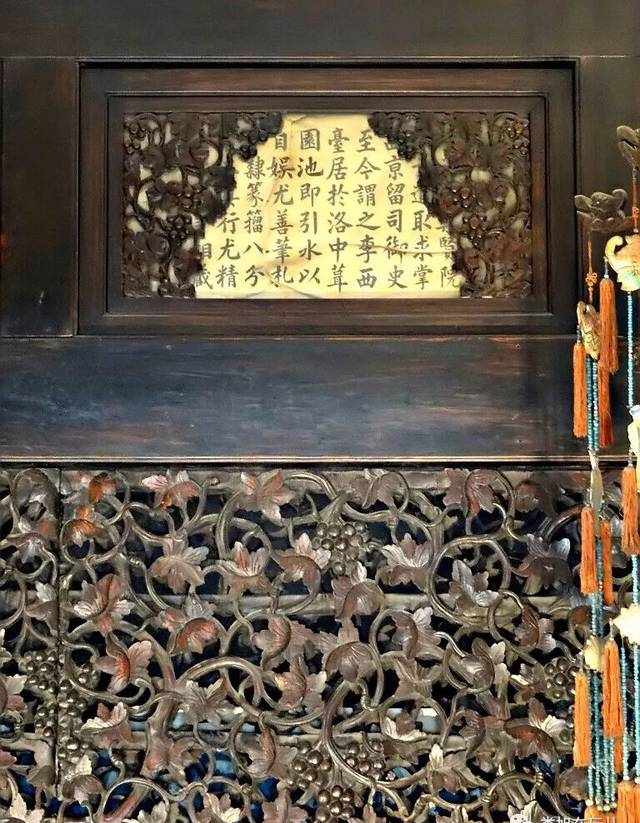 醫院
取求掌
京留司御史
至今謂之李西
臺居於洛中葺
園池即引水以
自娛尤善筆札
隸篆籀八分
行尤精
相